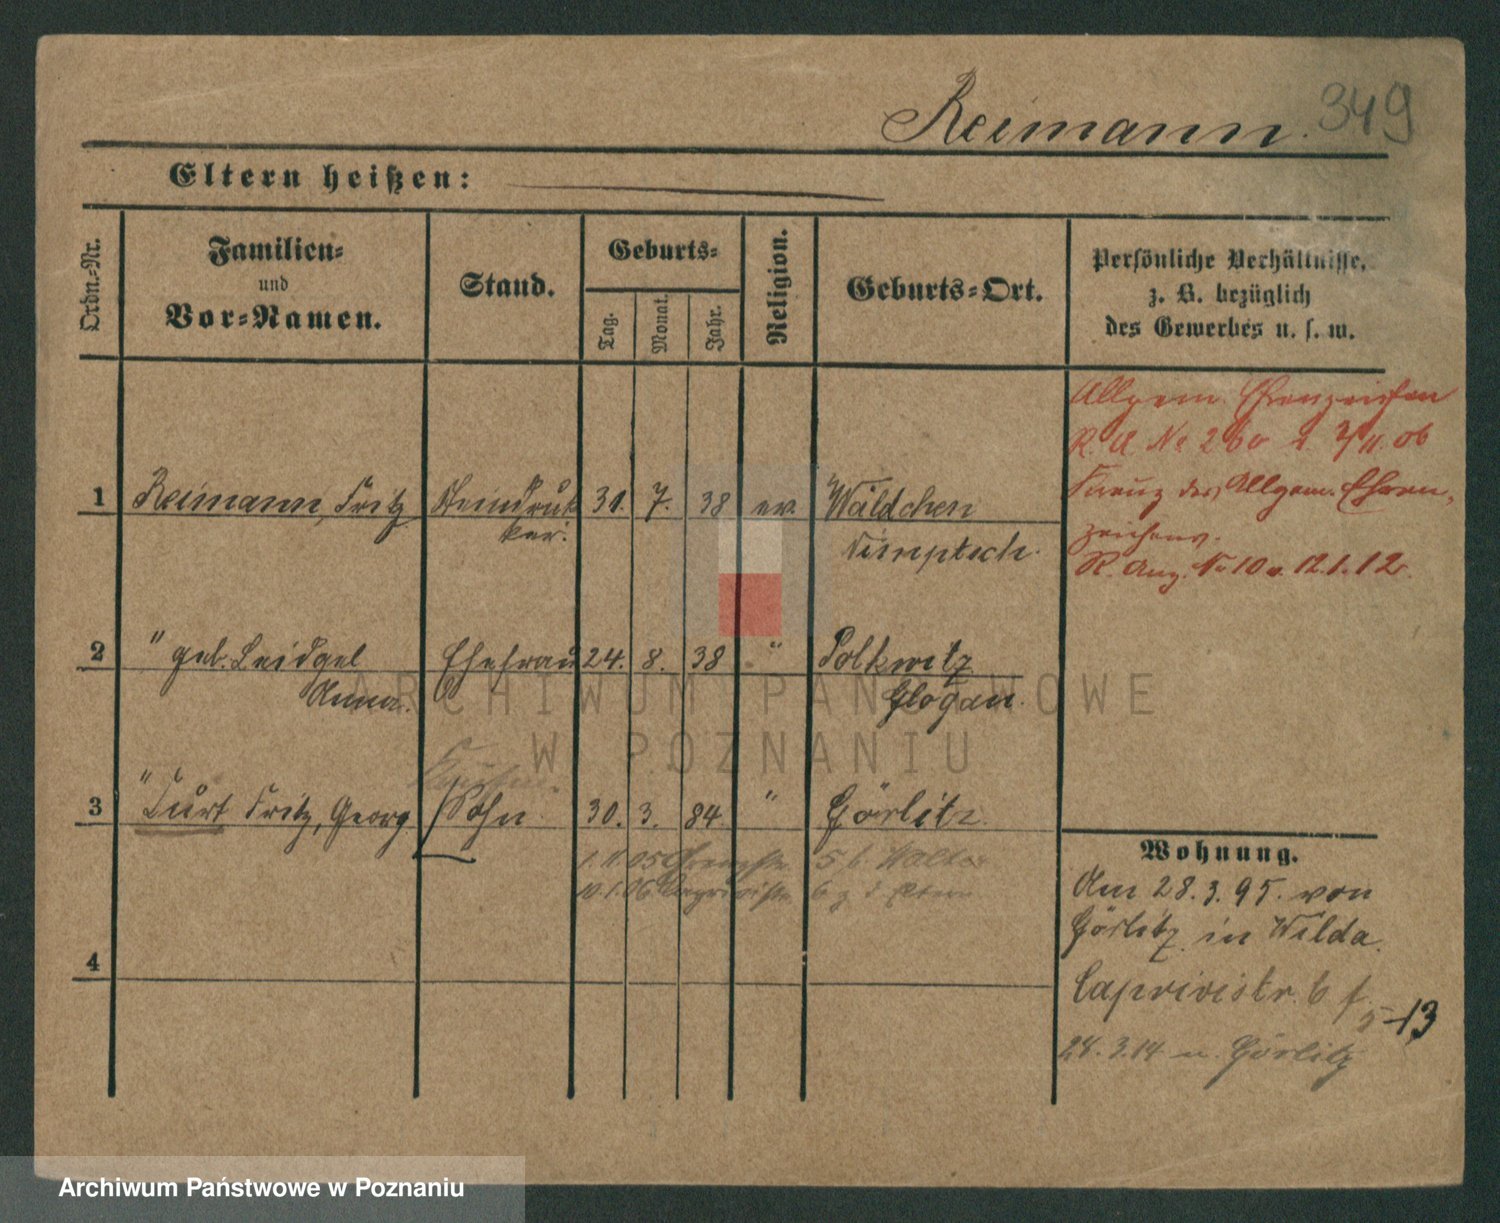 349
Reimann.
Eltern heißen:
Ordn.-Nr.
Familien-
und
Vor-Namen.
Stand.
Geburts-
Tag.
Monat.
Jahr.
Religion.
Geburts-Ort.
Persönliche Verhältnisse,
z. B. bezüglich
des Gewerbes u. s. w.
Allgem. Ehrenzeichen
R. A. No 260 v. 3/11. 06
Kreuz des Allgem. Ehren-
zeichens.
R. Anz. No 10 v. 12.1.12.
1 Reimann, Fritz Steindruk 31. 7. 38 ev. Wäldchen
ker. Nimptsch.
2 " geb. Leidgel Ehefrau 24. 8. 38 " Polkwitz
Anna. Glogau.
3 " Curt Fritz, Georg Sohn 30. 3. 84. " Görlitz.
1.11.05 5 b. Walter
10.1.06 Caprivistr. 6 z. d. Eltern
4
Wohnung.
Am 28.3.95. von
Görlitz in Wilda.
Caprivistr. 6 f.
5-13
28.3.14 n. Görlitz
ARCHIWUM PAŃSTWOWE
W POZNANIU
Archiwum Państwowe w Poznaniu